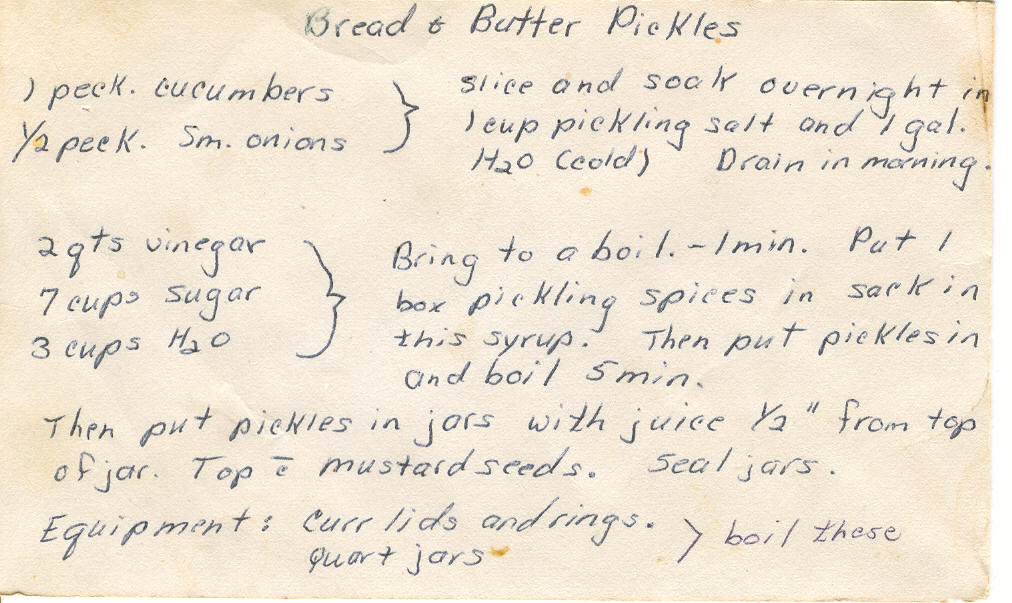 Bread & Butter Pickles
1 peck. cucumbers } slice and soak overnight in
1/2 peck. Sm. onions 1 cup pickling salt and 1 gal.
H2O (cold) Drain in morning.
2 qts vinegar } Bring to a boil. - 1 min. Put 1
7 cups sugar box pickling spices in sack in
3 cups H2O this syrup. Then put pickles in
and boil 5 min.
Then put pickles in jars with juice 1/2" from top
of jar. Top c̄ mustard seeds. Seal jars.
Equipment: Curr lids and rings. > boil these
Quart jars